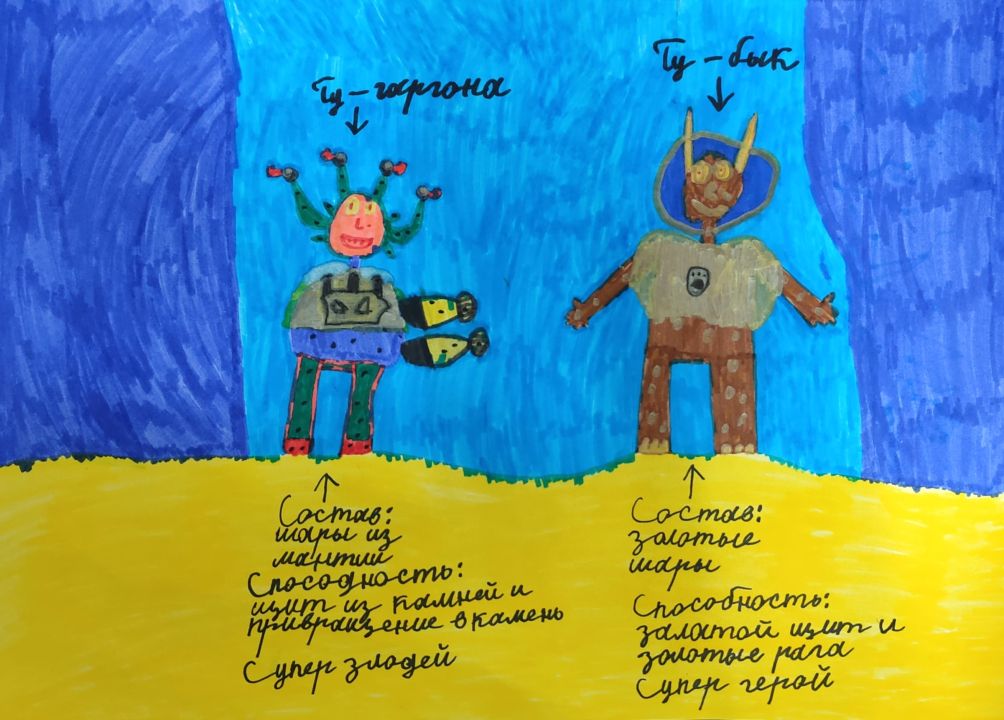 Ту - гаргона
Ту - бык
Состав:
шары из
мантии
Способность:
щит из камней и
привращение в камень
Супер злодей
Состав:
золотые
шары
Способность:
залатой щит и
золотые рага
Супер герой